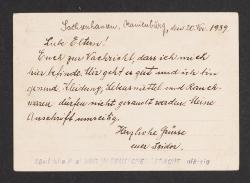 Sachsenhausen, Oranienburg, den 20. Nov. 1939
Liebe Eltern!
Euch zur Nachricht, dass ich mich
hier befinde. Mir geht es gut und ich bin
gesund. Kleidung, Lebensmittel und Rauch-
waren dürfen nicht gesandt werden. Meine
Anschrift umseitig.
Herzliche Grüsse
euer